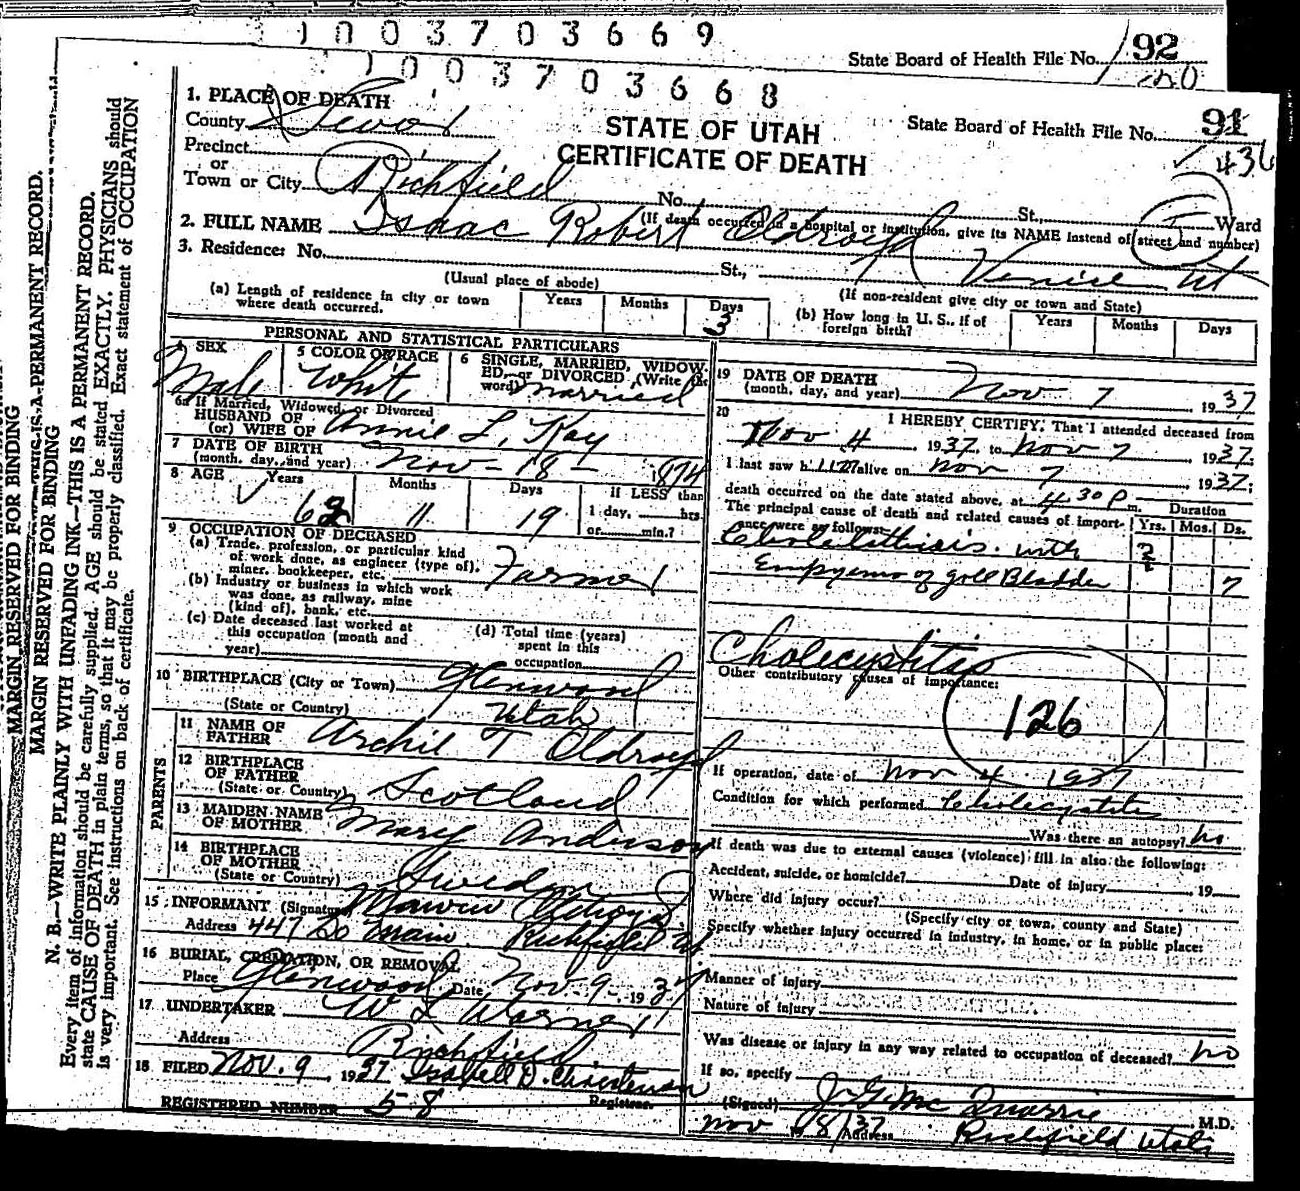 1003703669
State Board of Health File No. 192
1003703668
1. PLACE OF DEATH
County Sevier
STATE OF UTAH
CERTIFICATE OF DEATH
State Board of Health File No. 91
436
Precinct
or
Town or City Richfield No. St., 5 Ward
(If death occurred in a hospital or institution, give its NAME instead of street and number)
2. FULL NAME Isaac Robert Oldroyd
3. Residence: No. St., Venice Ut
(Usual place of abode) (If non-resident give city or town and State)
(a) Length of residence in city or town where death occurred. Years Months Days 3
(b) How long in U. S., if of foreign birth? Years Months Days
PERSONAL AND STATISTICAL PARTICULARS
4 SEX Male
5 COLOR OR RACE White
6 SINGLE, MARRIED, WIDOWED, or DIVORCED (Write the word) Married
6a If Married, Widowed, or Divorced
HUSBAND OF
(or) WIFE OF Annie L. Kay
7 DATE OF BIRTH
(month, day, and year) Nov - 18 - 1874
8 AGE Years 62 Months 11 Days 19 if LESS than 1 day, hrs or min.?
9 OCCUPATION OF DECEASED
(a) Trade, profession, or particular kind of work done, as engineer (type of), miner, bookkeeper, etc. Farmer
(b) Industry or business in which work was done, as railway, mine (kind of), bank, etc.
(c) Date deceased last worked at this occupation (month and year)
(d) Total time (years) spent in this occupation
10 BIRTHPLACE (City or Town) Glenwood
(State or Country) Utah
PARENTS
11 NAME OF FATHER Archil T Oldroyd
12 BIRTHPLACE OF FATHER
(State or Country) Scotland
13 MAIDEN NAME OF MOTHER Mary Anderson
14 BIRTHPLACE OF MOTHER
(State or Country) Sweden
15 INFORMANT (Signature) Oldroyd
Address 447 So Main Richfield Ut
16 BURIAL, CREMATION, OR REMOVAL
Place Glenwood Date Nov. 9 - 1937
17 UNDERTAKER W L Warner
Address Richfield
18 FILED Nov. 9, 1937 Isabell D. Christensen
REGISTERED NUMBER 58 Registrar.
19 DATE OF DEATH
(month, day, and year) Nov 7, 1937
20 I HEREBY CERTIFY, That I attended deceased from
Nov 4, 1937, to Nov 7, 1937.
I last saw him alive on Nov 7, 1937;
death occurred on the date stated above, at 4 30 P m.
The principal cause of death and related causes of importance were as follows: Duration Yrs. Mos. Ds.
Cholelithiasis with ?
Empyema of gall Bladder 7
Cholecystitis
Other contributory causes of importance:
126
If operation, date of Nov 4 1937
Condition for which performed Cholecystitis
Was there an autopsy? no
If death was due to external causes (violence) fill in also the following:
Accident, suicide, or homicide? Date of injury , 19
Where did injury occur?
(Specify city or town, county and State)
Specify whether injury occurred in industry, in home, or in public place:
Manner of injury
Nature of injury
Was disease or injury in any way related to occupation of deceased? no
If so, specify
(Signed) J. G. McQuarrie M.D.
Nov 8/37 Address Richfield Utah
MARGIN RESERVED FOR BINDING
MARGIN RESERVED FOR BINDING
N. B.—WRITE PLAINLY WITH UNFADING INK—THIS IS A PERMANENT RECORD.
Every item of information should be carefully supplied. AGE should be stated EXACTLY. PHYSICIANS should
state CAUSE OF DEATH in plain terms, so that it may be properly classified. Exact statement of OCCUPATION
is very important. See instructions on back of certificate.